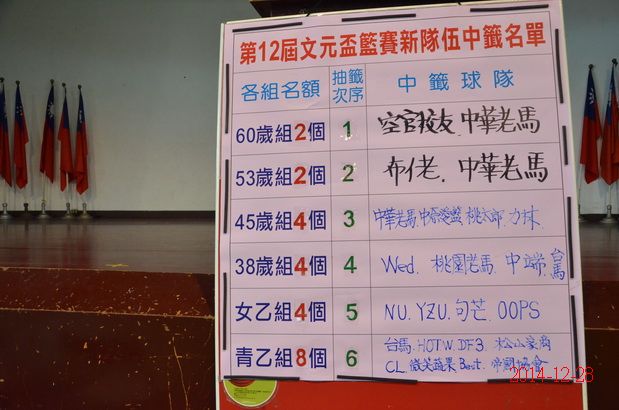 第12屆文元盃籃賽新隊伍中籤名單
各組名額 抽籤次序 中籤球隊
60歲組2個 1 空官校友.中華老馬
53歲組2個 2 布佬.中華老馬
45歲組4個 3 中華老馬.中原愛籃.桃太郎.力林.
38歲組4個 4 Wed.桃園老馬.中端.台馬
女乙組4個 5 NU.YZU.句芒.OOPS
青乙組8個 6 台馬.HOTW.DF3.松山家商
CL.微笑蘋果.Best.帝國協會
2014-12-28